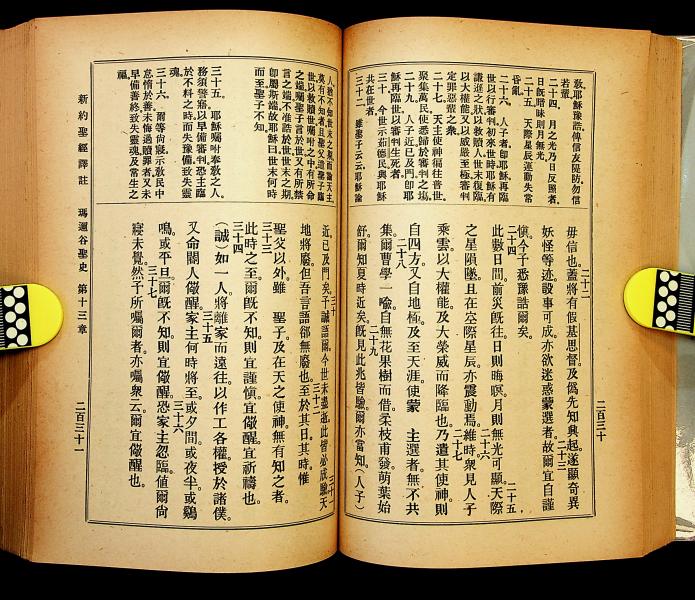 敎、耶穌豫誥、俾信友隄防、勿信
若輩、
二十四、月之光、乃日反照者、
日旣暗昧、則月無光、
二十五、天際星辰、運動失常
皆亂、
二十六、人子者、卽耶穌、再臨
世以行審判、初來世時、耶穌有
謙遜之狀、以救贖人、世末復臨、
以大權能、又以威嚴、至極審判
定罪惡輩之衆、
二十七、天主使神、徧往普世、
聚集萬民、使悉歸於審判之場、
二十九、人子近已及門、卽耶
穌再臨世、以審判生死者、
三十、今世示茹德民、與耶穌
共在世者、
三十二、雖聖子云云、耶穌論
二十二
毋信也、蓋將有假基思督及僞先知興起、遂顯奇異
二十三
妖怪等迹、設事可成、亦欲迷惑蒙選者、故爾宜自謹
愼、今予悉豫誥爾矣、
二十四
二十五
此數日間、前災旣往、日則晦暝、月則無光、可顯天際
二十六
之星隕墜、且在空際星辰亦震動焉、維時衆見人子
二十七
乘雲以大權能、及大榮威而降臨也、乃遣其使神、則
自四方、又自地極、及至天涯、使蒙 主選者、無不共
二十八
集、爾曹學一喻、自無花果樹而借、柔枝甫發萌葉始
二十九
舒、爾知夏時近矣、旣見此兆皆驗、爾亦當知、(人子)
二百三十
世、以救贖世、囑咐之中、有所命
之端、囑聖子言於世、又有所禁
言之端、不准誥於世、世末之期、
卽屬斯端、故耶穌曰、世末何時
而至、聖子不知、
三十五、耶穌囑咐奉敎之人、
務須警寤、以早備審判、恐主臨
於不料之時、而失豫備、致失靈
魂、
三十六、爾等尙寢、示敎民中
怠惰於善、未悔過贖罪者、又未
早備善終、致失靈魂、及常生之
福、
三十
三十一
近已及門矣、予誠語爾、今世未盡逝、此皆必成驗、天
三十二
地將廢、但吾言語郤無廢也、至於其日其時、惟
三十三
聖父以外、雖 聖子及在天之使神、無有知之者、
此時之至、爾旣不知、則宜謹愼、宜儆醒、宜祈禱也、
三十四
(誠)如一人、將離家而遠往、以作工各權、授於諸僕、
三十五
又命閽人儆醒、家主何時將至、或夕間、或夜半、或鷄
三十六
鳴、或平旦、爾旣不知、則宜儆醒、恐家主忽臨、値爾尙
三十七
寢未覺、然予所囑爾者、亦囑衆云、爾宜儆醒也、
新約聖經譯註 瑪邇谷聖史 第十三章 二百三十一